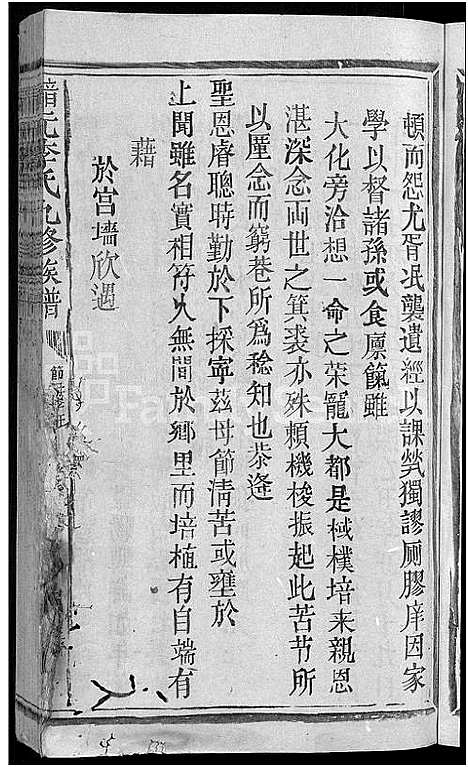 頓而怨尤胥泯襲遺經以課煢獨謬厠膠庠因家
學以督諸孫或食廪餼雖
大化旁洽想一命之荣寵大都是棫樸培来親恩
湛深念両世之箕裘亦殊頼機梭振起此苦节所
以厪念而窮巷所為稔知也恭逢
聖恩睿聰時勤於下採寧茲母節清苦或壅於
上聞雖名實相符久無間於郷里而培植有自端有
藉
於宫墻欣遇
李氏九修族譜
節